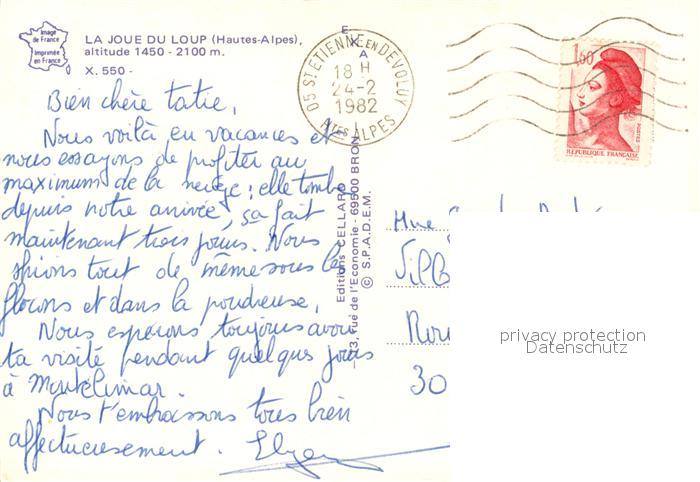 Image
de France
Imprimée
en France
LA JOUE DU LOUP (Hautes-Alpes),
altitude 1450 - 2100 m.
X. 550 -
Bien chère tatie,
Nous voilà en vacances et
nous essayons de profiter au
maximum de la neige ; elle tombe
depuis notre arrivée, sa fait
maintenant trois jours. Nous
skions tout de même sous les
flocons et dans la poudreuse.
Nous esperons toujours avoir
ta visite pendant quelques jours
à Montelimar.
Nous t'embrassons tous bien
affectueusement.
EXA
Editions CELLARD
73, rue de l'Economie - 69500 BRON
© S.P.A.D.E.M.
05 ST ETIENNE EN DEVOLUY
18 H
24-2
1982
HTES ALPES
1,60
POSTES
REPUBLIQUE FRANÇAISE
30
privacy protection
Datenschutz